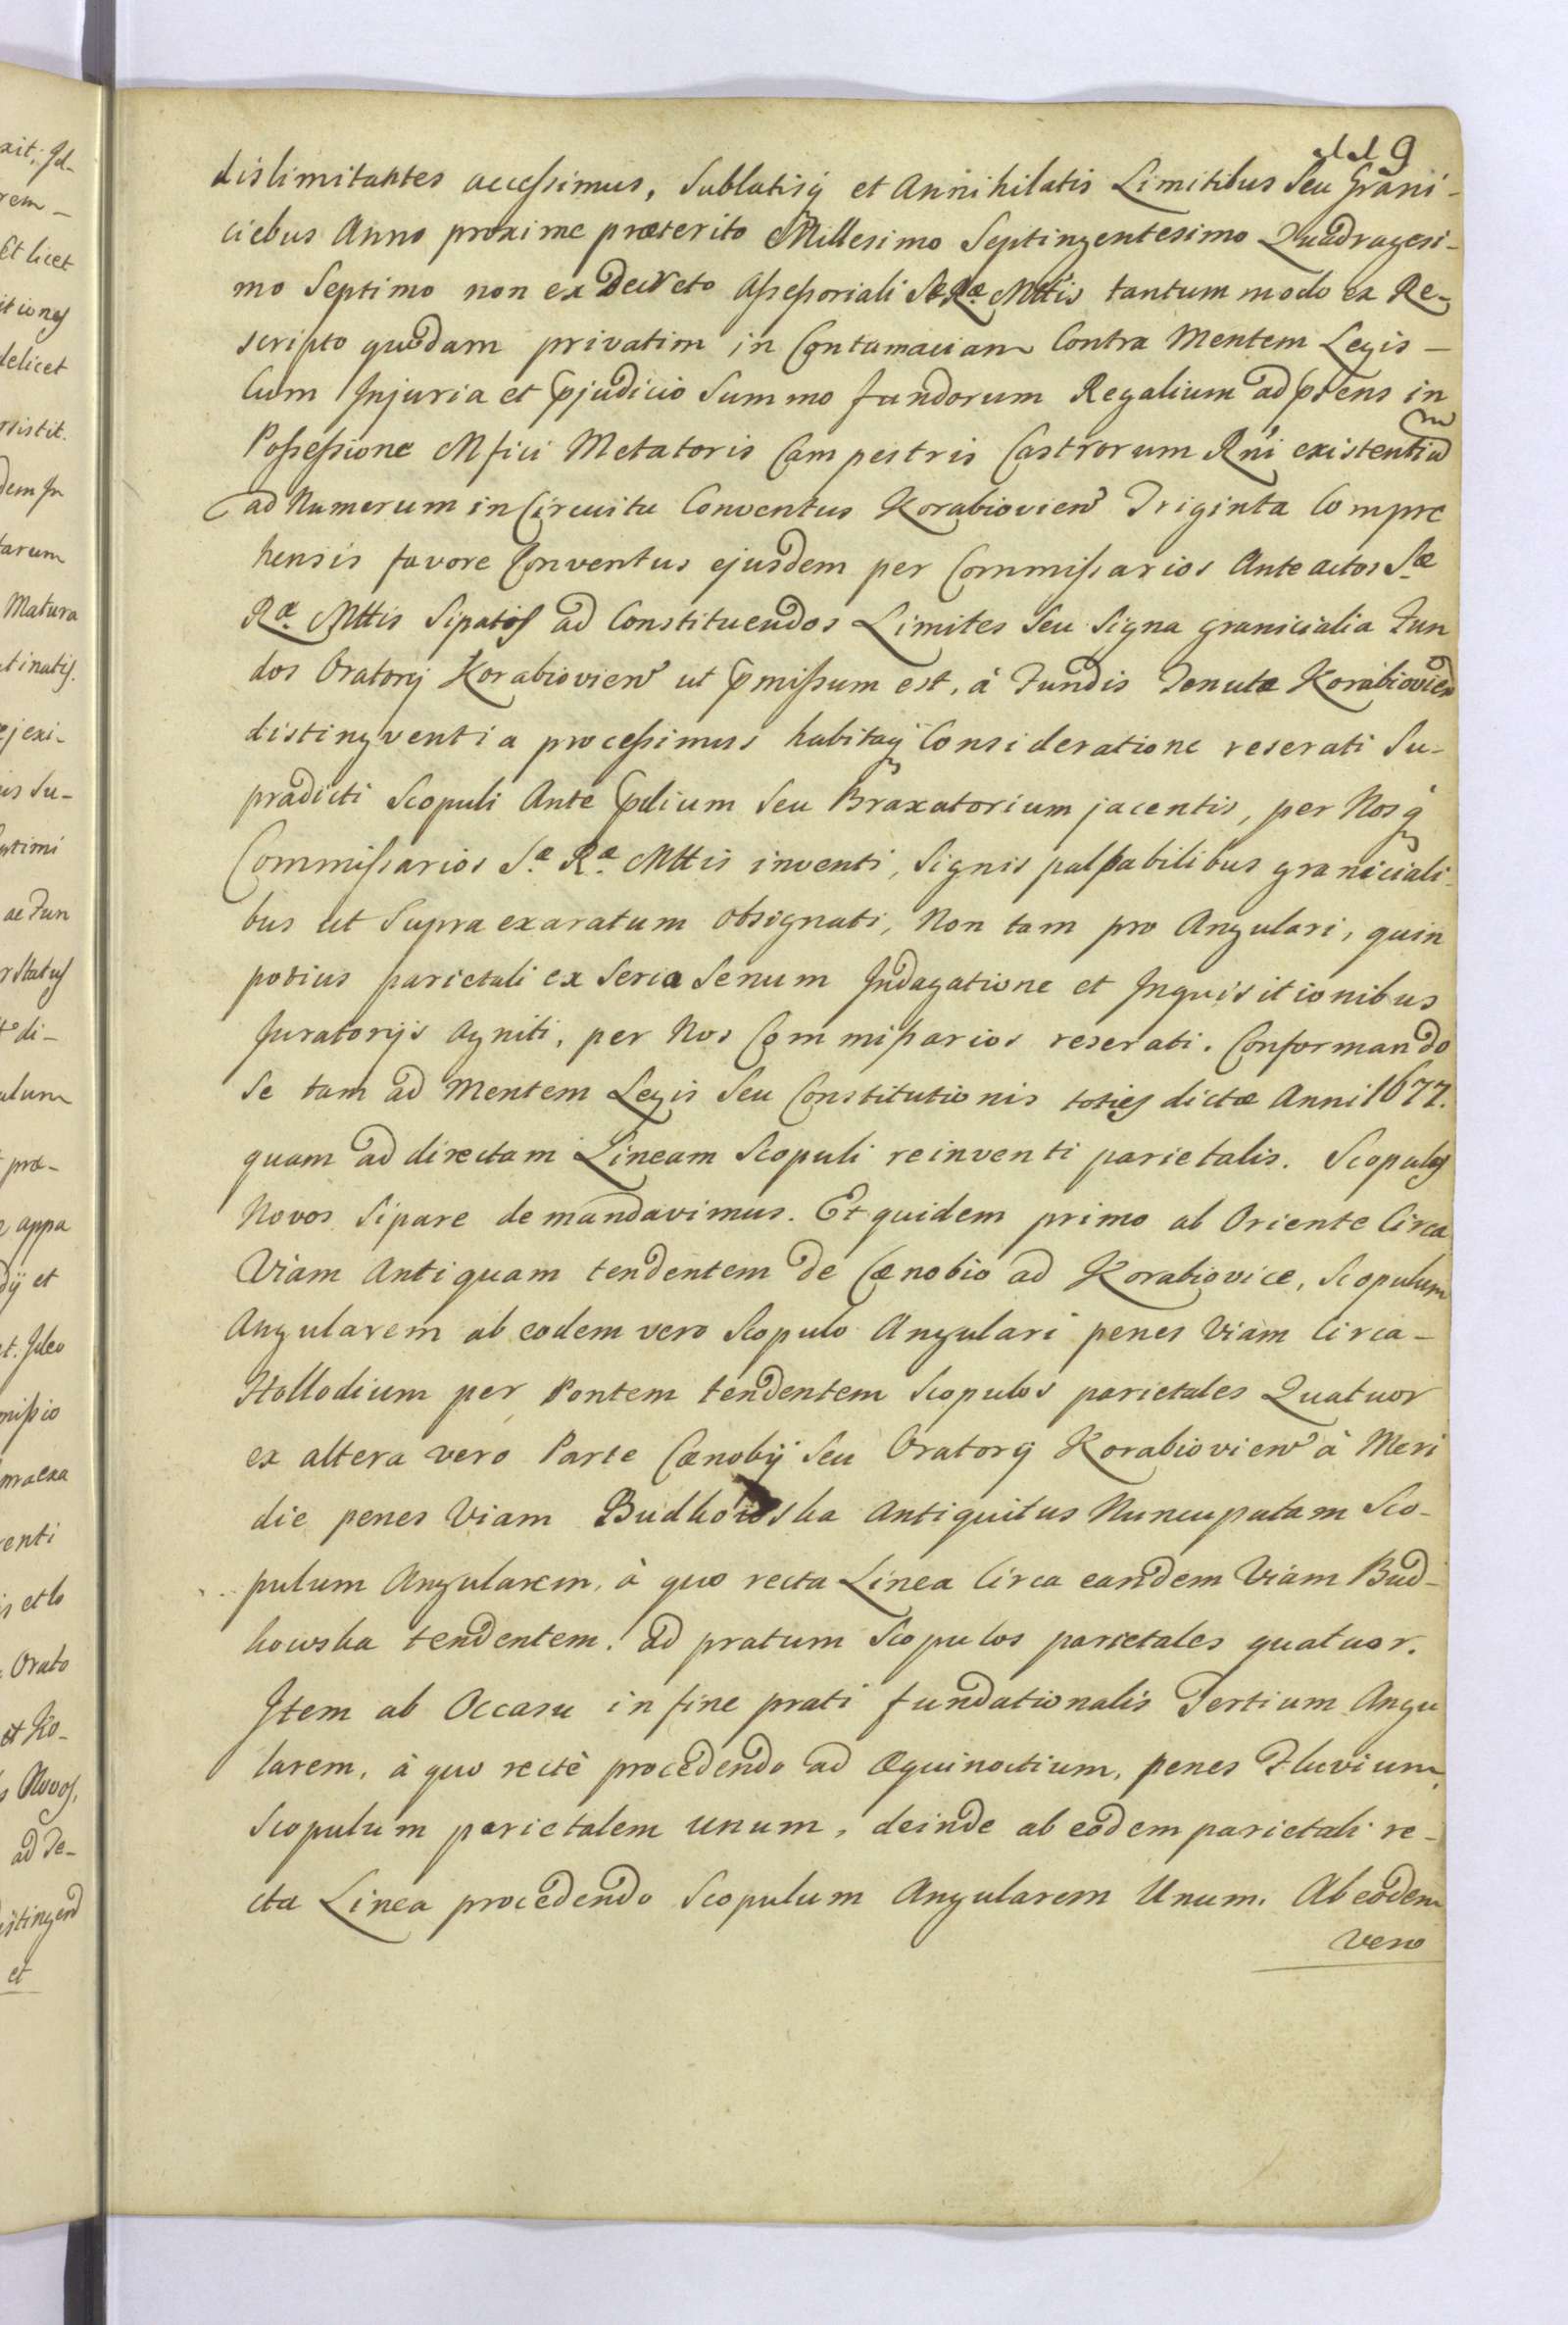 9
dislimitantes accessimus, Sublatisq́ et Annihilatis Limitibus Seu Grani-
ciebus Anno proxime præterito Millesimo Septingentesimo Quadragesi-
mo Septimo non ex Decreto Assessoriali Sæ Ræ Mttis tantum modo ex Re-
scripto quodam privatim in Contumaciam Contra Mentem Legis-
Cum Injuria et Pjudicio Summo fundorum Regalium ad Pñens in
Possessione Mfici Metatoris Campestris Castrorum Rñi existentium
ad Numerum in Circuitu Conventus Korabioview Triginta Compre
hensis favore Conventus ejusdem per Commissarios Ante actos Sæ
Ræ Mttis Sipatos ad Constituendos Limites Seu Signa granicialia Fun
dos Oratorij Korabioview ut Pmissum est, à Fundis Tenutæ Korabioview
distingventia processimus habitaq́ Consideratione reserati Su-
pradicti Scopuli Ante Pdium Seu Braxatorium jacentis, per Nosq́
Commissarios Sæ Ræ Mttis inventi, Signis palpabilibus graniciali-
bus ut Supra exaratum obsignati, Non tam pro Angulari, quin
potius parietali ex Seria Senum Indagatione et Inquisitionibus
Juratorijs agniti, per Nos Commissarios reserati. Conformando
Se tam ad Mentem Legis Seu Constitutionis toties dictæ Anni 1677.
quam ad directam Lineam Scopuli reinventi parietalis. Scopulos
Novos Sipare demandavimus. Et quidem primo ab Oriente Circa
Viam Antiquam tendentem de Cænobio ad Korabiovice, Scopulum
Angularem ab eodem vero Scopulo Angulari penes Viam Circa-
Hollodium per Pontem tendentem Scopulos parietales Quatuor
ex altera vero Parte Cænobij Seu Oratorij Korabioview à Meri
die penes Viam Budkowska Antiquitus Nuncupatam Sco-
pulum Angularem, à quo recta Linea Circa eandem Viam Bud-
kowska tendentem. ad pratum Scopulos parietales quatuor.
Item ab Occasu in fine prati fundationalis Tertium Angu
larem, à quo rectè procedendo ad Æquinoctium, penes Fluvium,
Scopulum parietalem unum, deinde ab eodem parietali re-
cta Linea procedendo Scopulum Angularem Unum. Ab eodem
vero